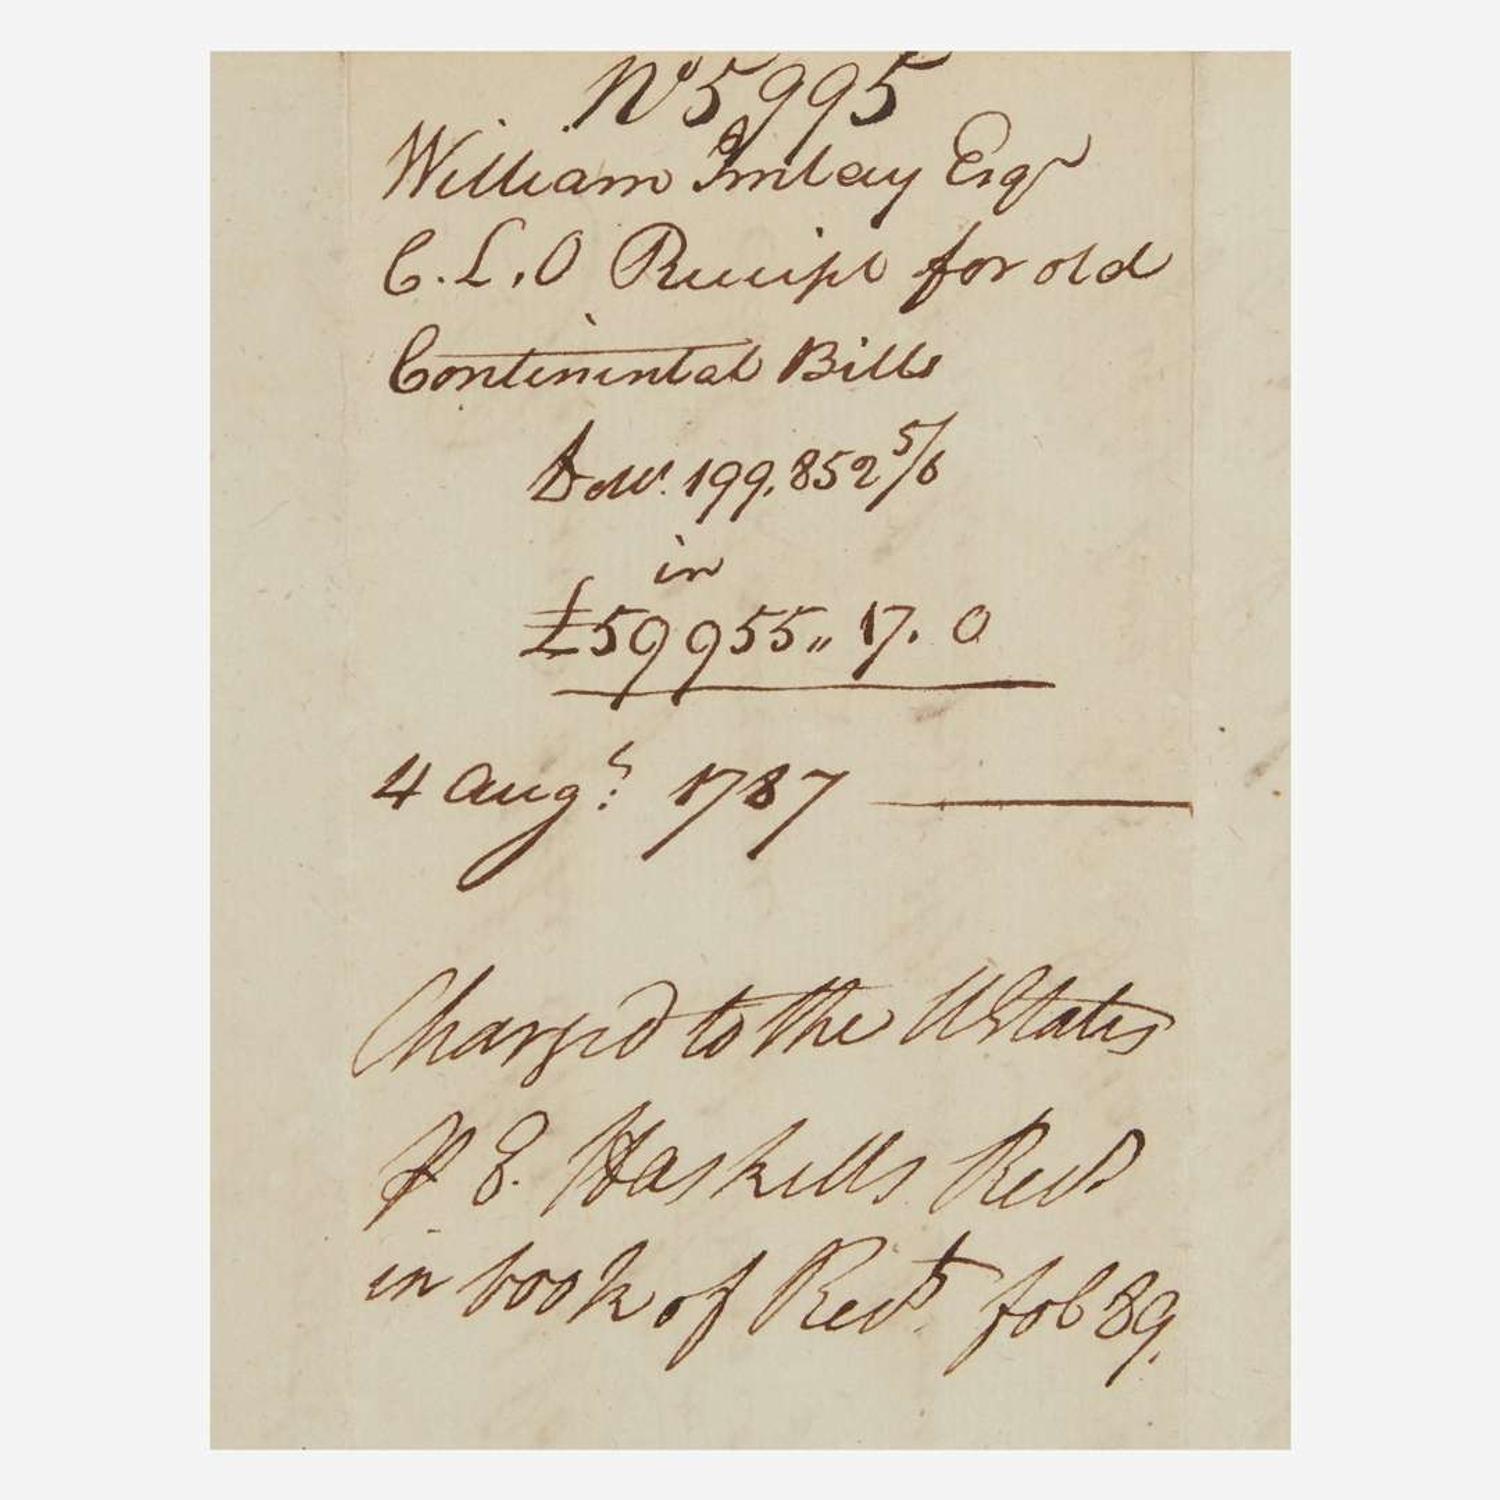 No 5995
William Imlay Esqr
C. L. O Receipt for old
Continental Bills
Dolls. 199,852 5/6
in
£59955,, 17. 0
4 Augt. 1787
Charged to the UStates
P E. Haskells Rect
in book of Rects. fol 89.